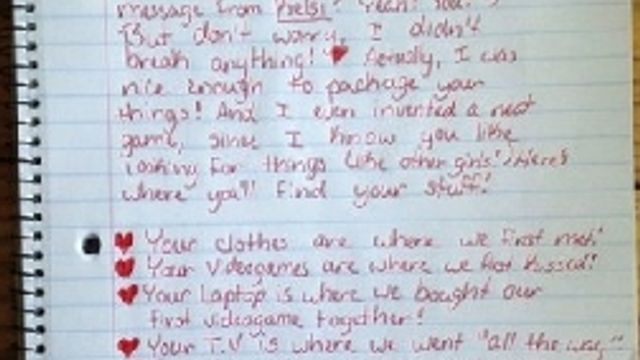 message from Kelsi? Yeah!
But don't worry, I didn't
break anything! ♥ Actually, I was
nice enough to package your
things! And I even invented a neat
game, since I know you like
looking for things like other girls! Here's
where you'll find your stuff!
♥ Your clothes are where we first met!
♥ Your Videogames are where we first kissed!
♥ Your Laptop is where we bought our
first videogame together!
♥ Your T.V is where we went "all the way"